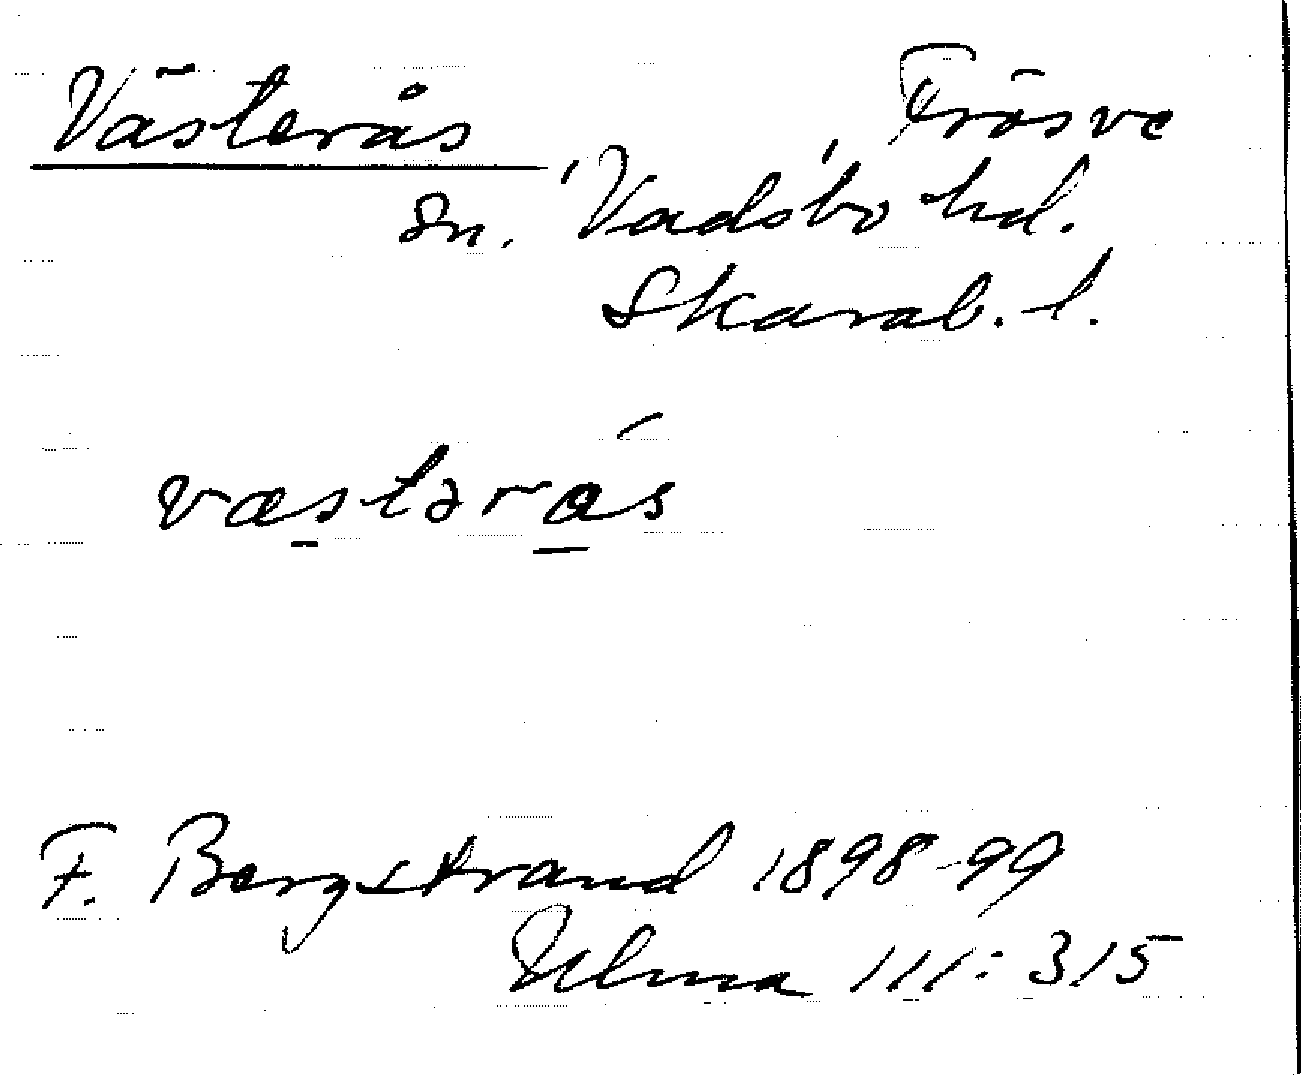 Västerås, Frösve
sn., Vadsbo hd.
Skarab. l.
væstərás
F. Bergstrand 1898-99
Ulma 111:315